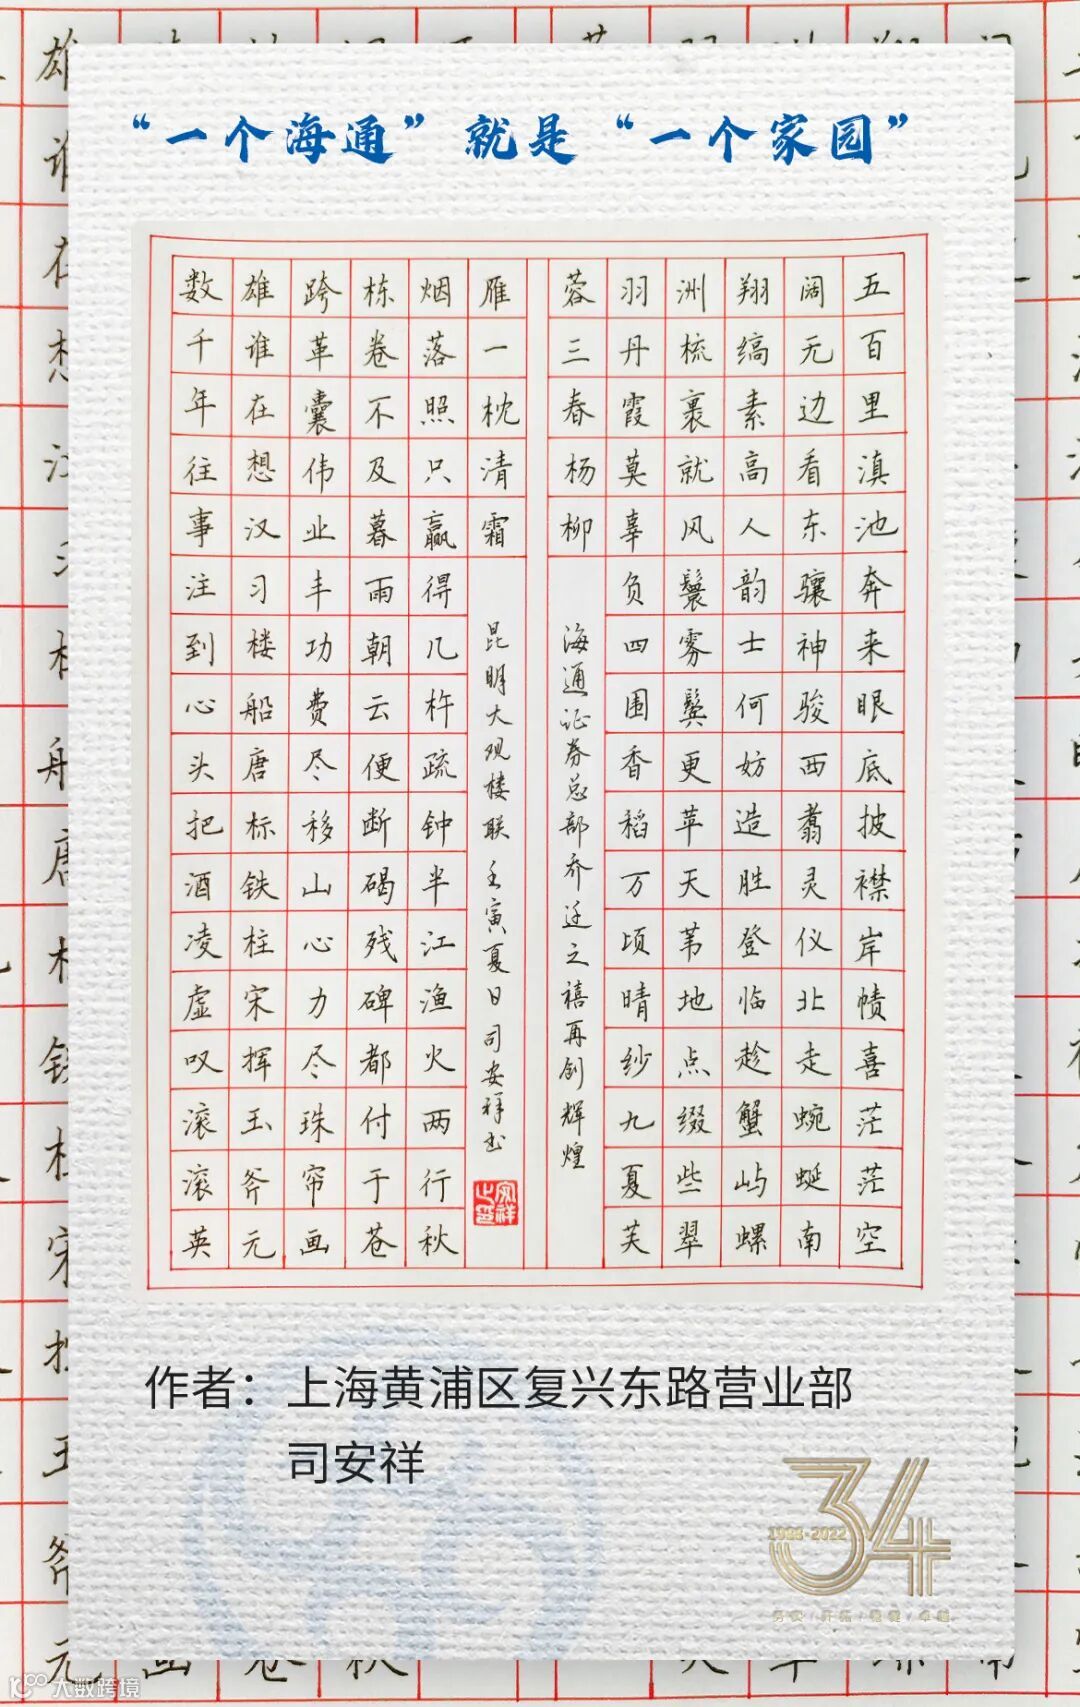 “一个海通”就是“一个家园”
五百里滇池奔来眼底披襟岸帻喜茫茫空
阔无边看东骧神骏西翥灵仪北走蜿蜒南
翔缟素高人韵士何妨造胜登临趁蟹屿螺
洲梳裹就风鬟雾鬓更苹天苇地点缀些翠
羽丹霞莫辜负四围香稻万顷晴纱九夏芙
蓉三春杨柳
海通证券总部乔迁之禧再创辉煌
数千年往事注到心头把酒凌虚叹滚滚英
雄谁在想汉习楼船唐标铁柱宋挥玉斧元
跨革囊伟业丰功费尽移山心力尽珠帘画
栋卷不及暮雨朝云便断碣残碑都付于苍
烟落照只赢得几杵疏钟半江渔火两行秋
雁一枕清霜
昆明大观楼联 壬寅夏日司安祥书
安祥之印
作者：上海黄浦区复兴东路营业部
司安祥
34
1988-2022
务实/开拓/稳健/卓越
大数跨境